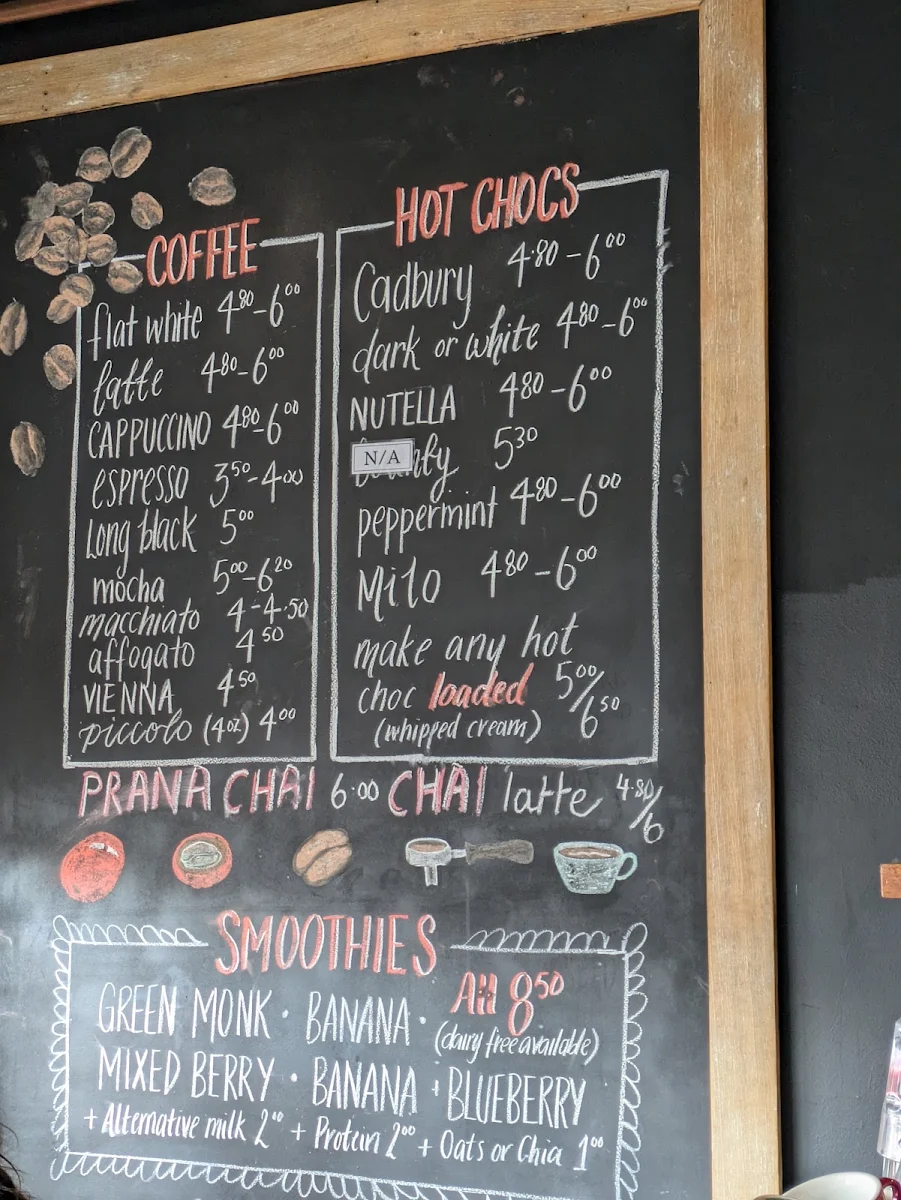 COFFEE
flat white 4.80-6.00
latte 4.80-6.00
CAPPUCCINO 4.80-6.00
espresso 3.50-4.00
Long black 5.00
mocha 5.00-6.20
macchiato 4-4.50
affogato 4.50
VIENNA 4.50
piccolo (4oz) 4.00
HOT CHOCS
Cadbury 4.80-6.00
dark or white 4.80-6.00
NUTELLA 4.80-6.00
N/A 5.30
peppermint 4.80-6.00
Milo 4.80-6.00
make any hot
choc loaded 5.00/6.50
(whipped cream)
PRANA CHAI 6.00 CHAI latte 4.80/6
SMOOTHIES
All 8.50
GREEN MONK · BANANA · (dairy free available)
MIXED BERRY · BANANA · BLUEBERRY
+ Alternative milk 2.00 + Protein 2.00 + Oats or Chia 1.00